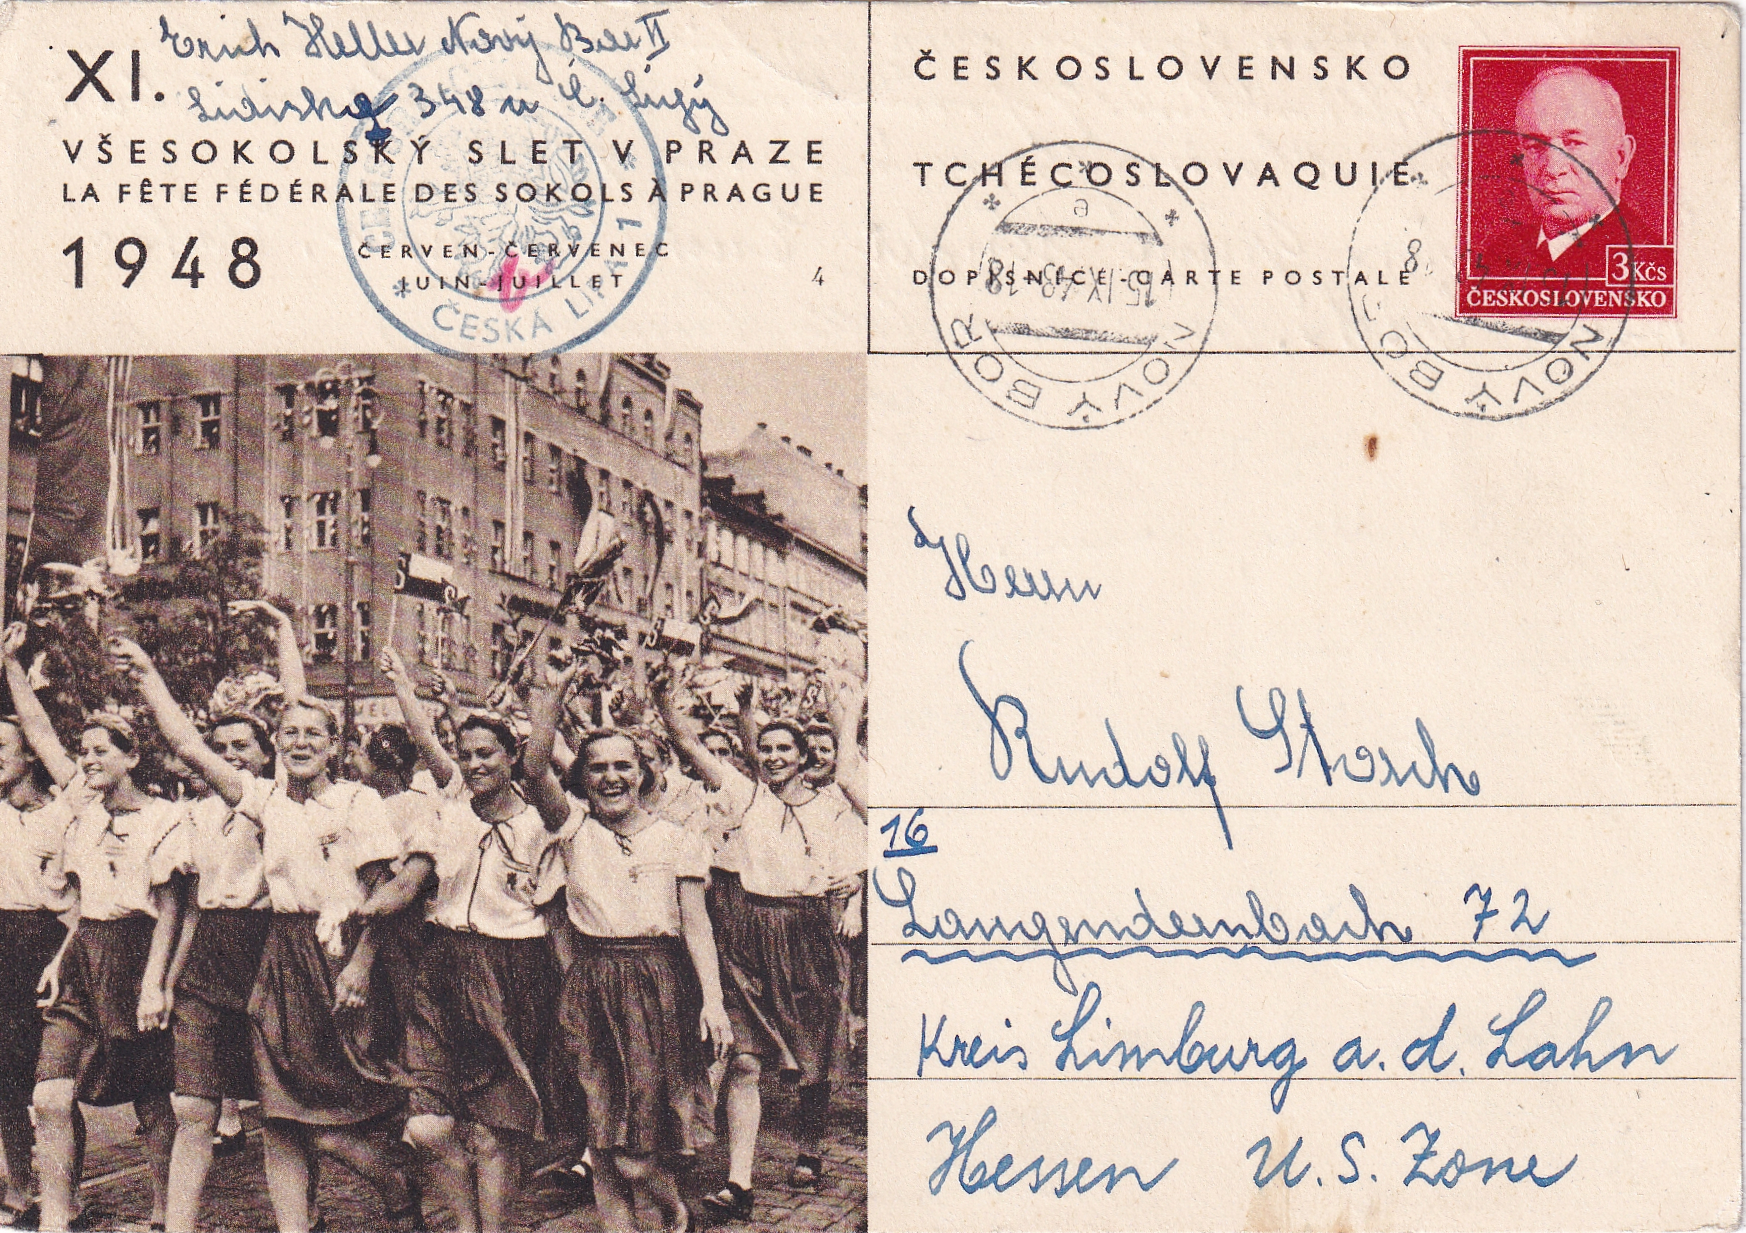 Erich Heller Nový Bor II
XI.
348 u Č. Lípy
VŠESOKOLSKÝ SLET V PRAZE
LA FÊTE FÉDÉRALE DES SOKOLS À PRAGUE
1948
ČERVEN-ČERVENEC
JUIN-JUILLET
4
ČESKÁ LÍPA 1
ČESKOSLOVENSKO
TCHÉCOSLOVAQUIE
DOPISNICE-CARTE POSTALE
3Kčs
ČESKOSLOVENSKO
NOVÝ BOR
15.IX.48-18
e
NOVÝ BOR
Herrn
Rudolf Storch
16
Langendernbach 72
Kreis Limburg a. d. Lahn
Hessen U. S. Zone